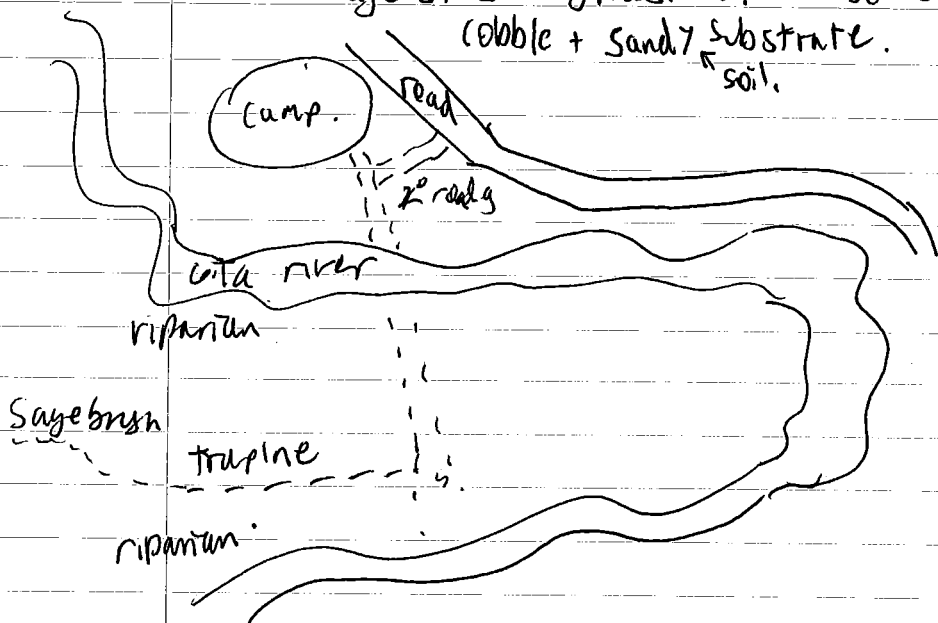 cobble + sandy substrate.
soil.
camp.
road
2° road
river
riparian
Sagebrush
trapline
riparian